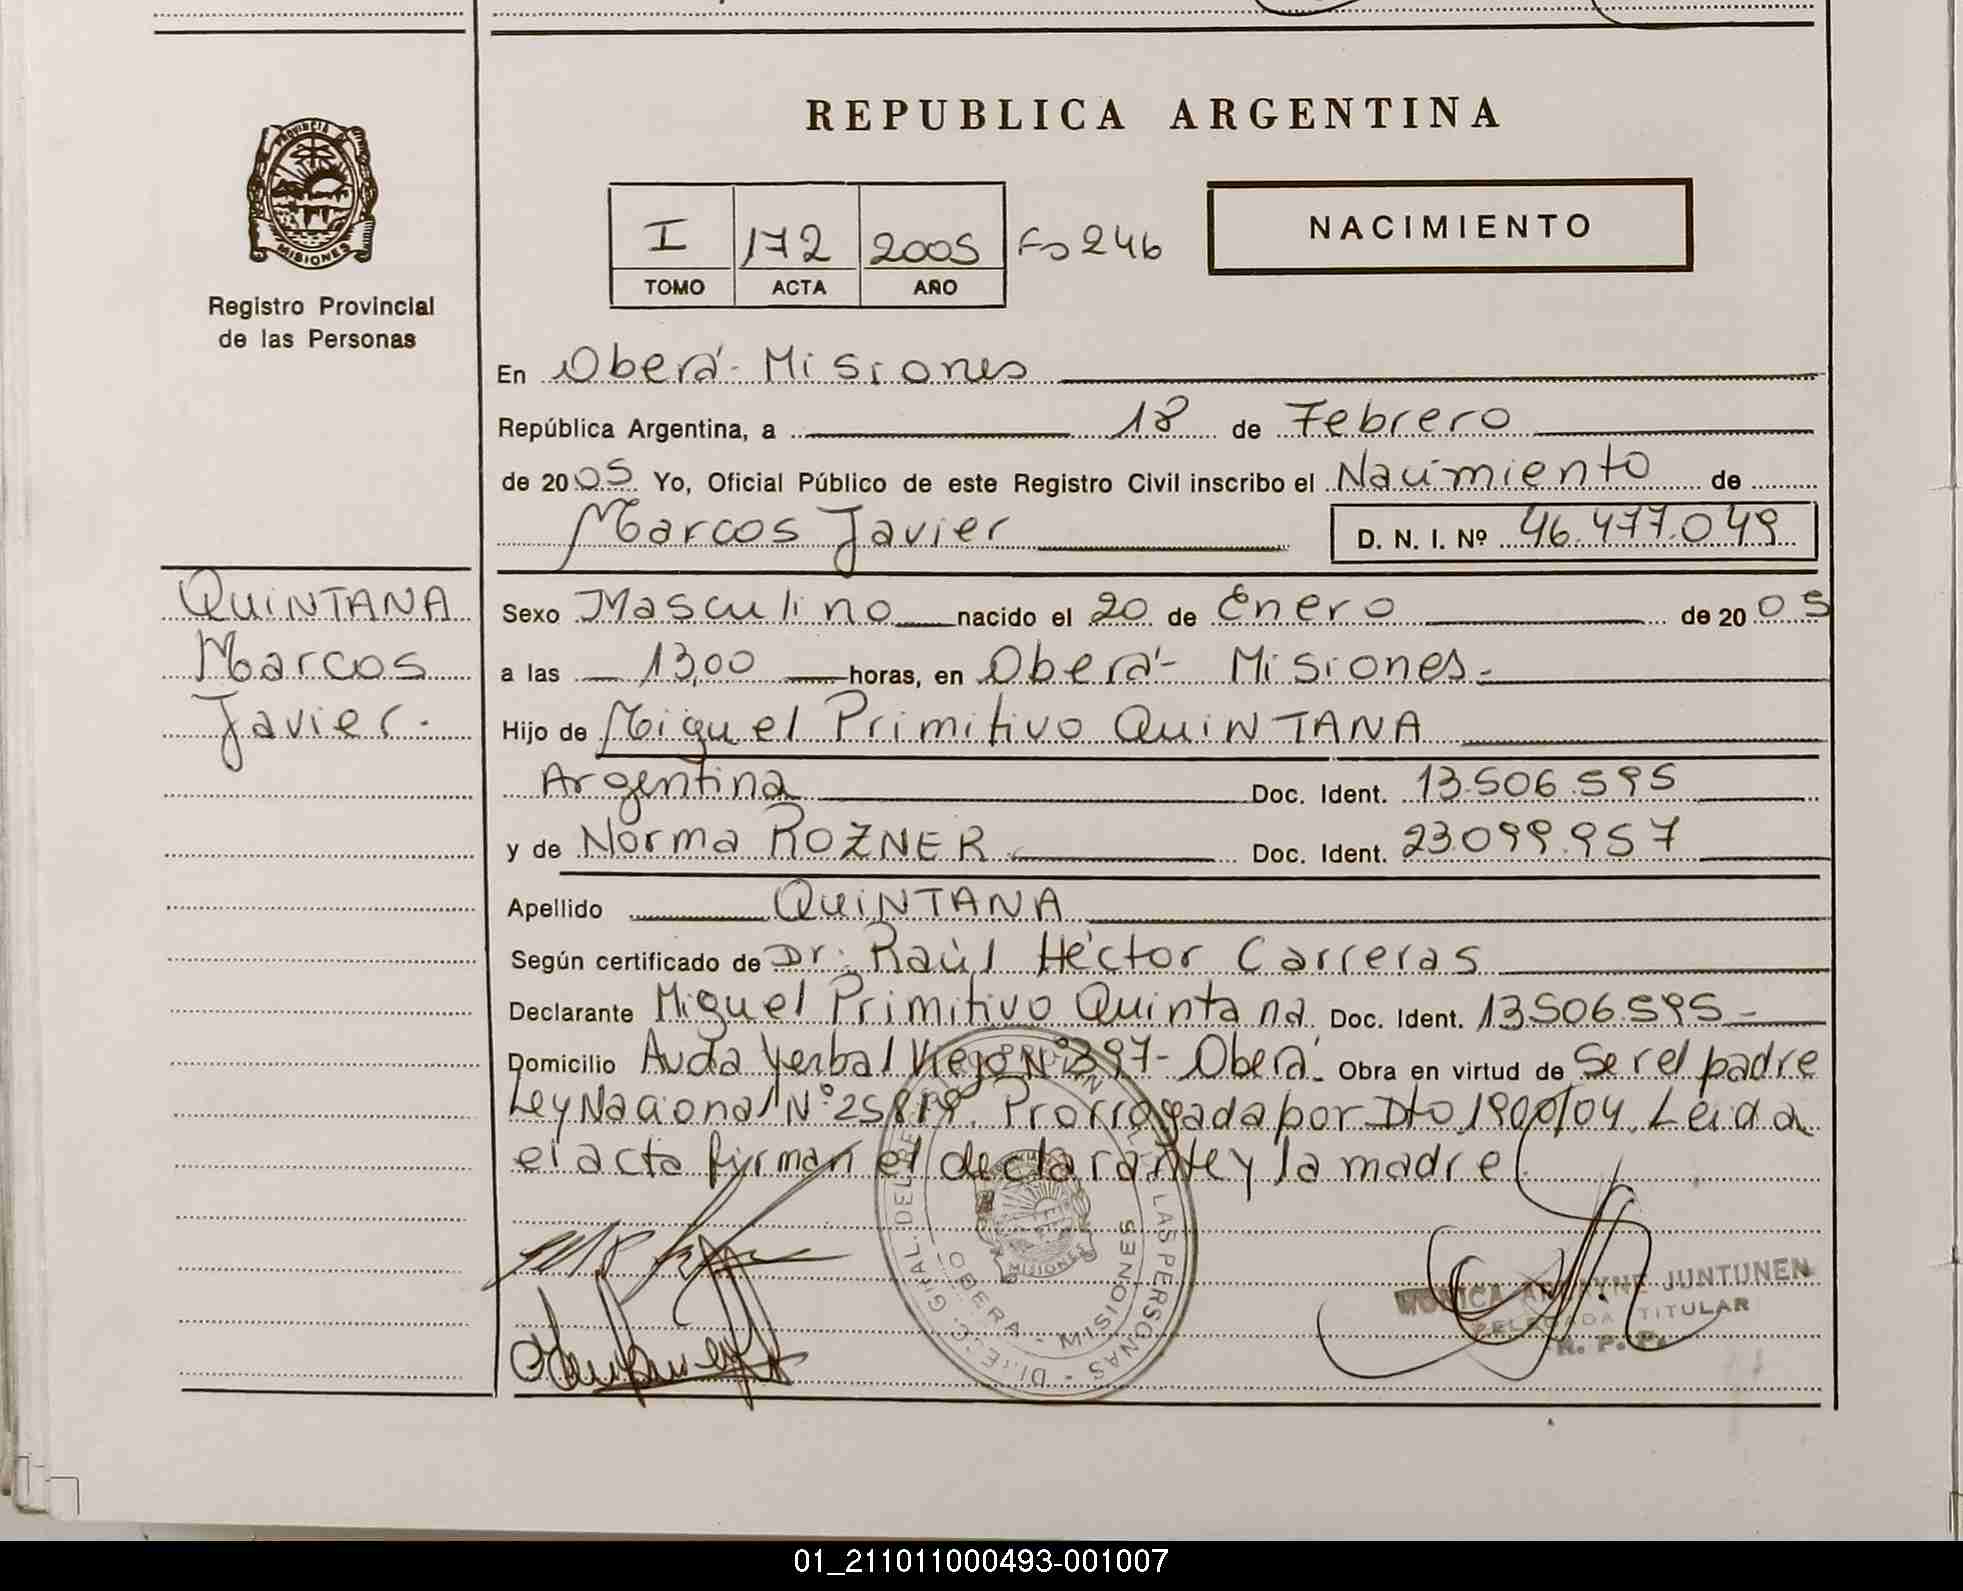 REPUBLICA ARGENTINA
PROVINCIA DE MISIONES
Registro Provincial
de las Personas
I 172 2005 Fo 246
TOMO ACTA AÑO
NACIMIENTO
En Oberá - Misiones
República Argentina, a 18 de Febrero
de 2005 Yo, Oficial Público de este Registro Civil inscribo el Nacimiento de
Marcos Javier D. N. I. Nº 46.477.049
QUINTANA
Marcos
Javier.
Sexo Masculino nacido el 20 de Enero de 2005
a las 13,00 horas, en Oberá - Misiones.
Hijo de Miguel Primitivo QUINTANA
Argentina Doc. Ident. 13.506.595
y de Norma ROZNER Doc. Ident. 23.099.957
Apellido QUINTANA
Según certificado de Dr. Raúl Héctor Carreras
Declarante Miguel Primitivo Quintana Doc. Ident. 13.506.595-
Domicilio Avda Yerbal Viejo Nº 397 - Oberá. Obra en virtud de Ser el padre
Ley Nacional Nº 25819. Prorrogada por Dto 1900/04. Leida
el acta firman el declarante y la madre.
OBERA - MISIONES
MISIONES
JUNTUNEN
DELEGADA TITULAR
R. P. P.
01_211011000493-001007